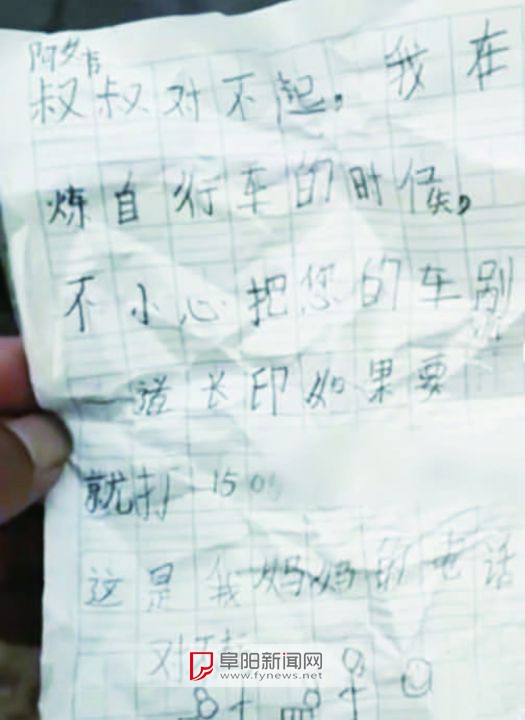 阿
叔叔对不起，我在
炼自行车的时候，
不小心把您的车
一 长印如果要
就打 150
这是我妈妈的电话
对不
阜阳新闻网
www.fynews.net